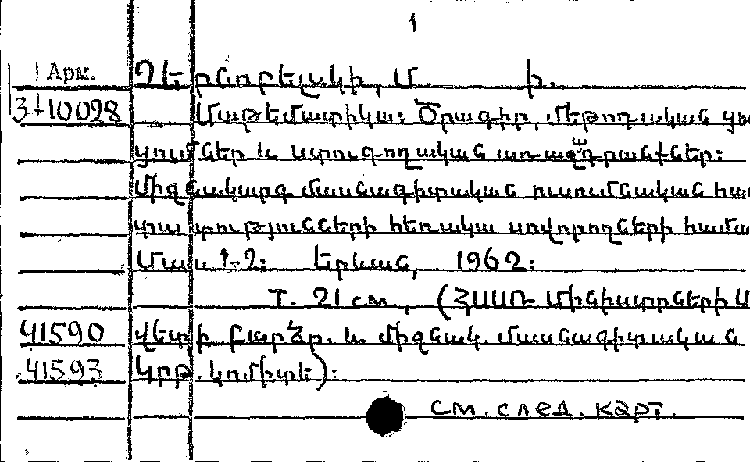 1
Арм. Չերնոբելսկի, Մ. Ի.
3-10028 Մաթեմատիկա: Ծրագիր, մեթոդական ցու
ցումներ և ստուգողական առաջադրանքներ:
Միջնակարգ մասնագիտական ուսումնական հաս
տատությունների հեռակա սովորողների համա
Մաս 1-2: Երևան, 1962:
Т. 21 см, (ՀՍՍՌ Մինիստրների Ս
41590 վետի բարձր. և միջնակ. մասնագիտական
41593 կրթ. կոմիտե):
см. след. карт.